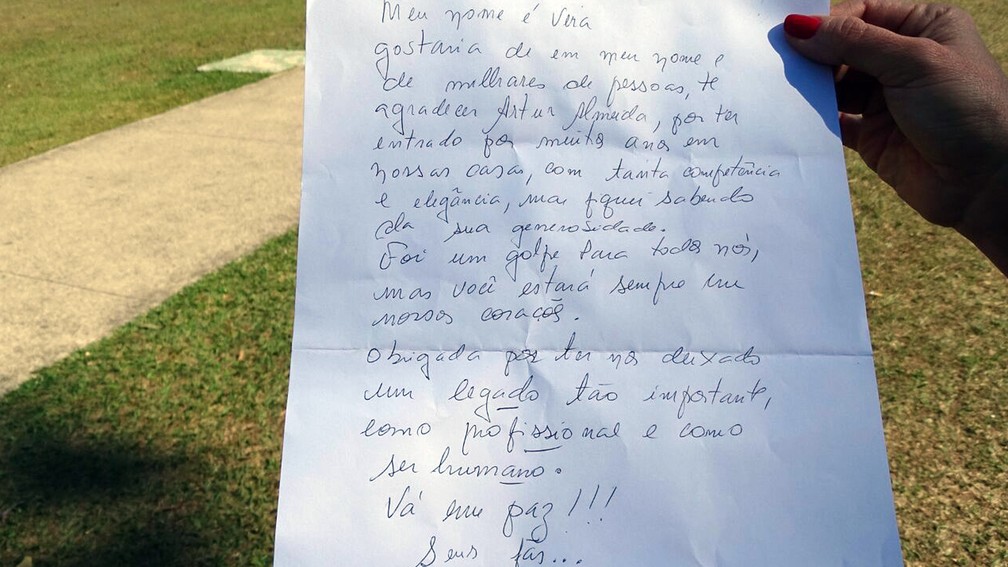 Meu nome é Vera
gostaria de em meu nome e
de milhares de pessoas, te
agradecer Artur Almeida, por ter
entrado por muitos anos em
nossas casas, com tanta competência
e elegância, mas fiquei sabendo
da sua generosidade.
Foi um golpe para todos nós,
mas você estará sempre em
nossos corações.
Obrigada por ter nos deixado
um legado tão importante,
como profissional e como
ser humano.
Vá em paz!!!
Seus fãs...